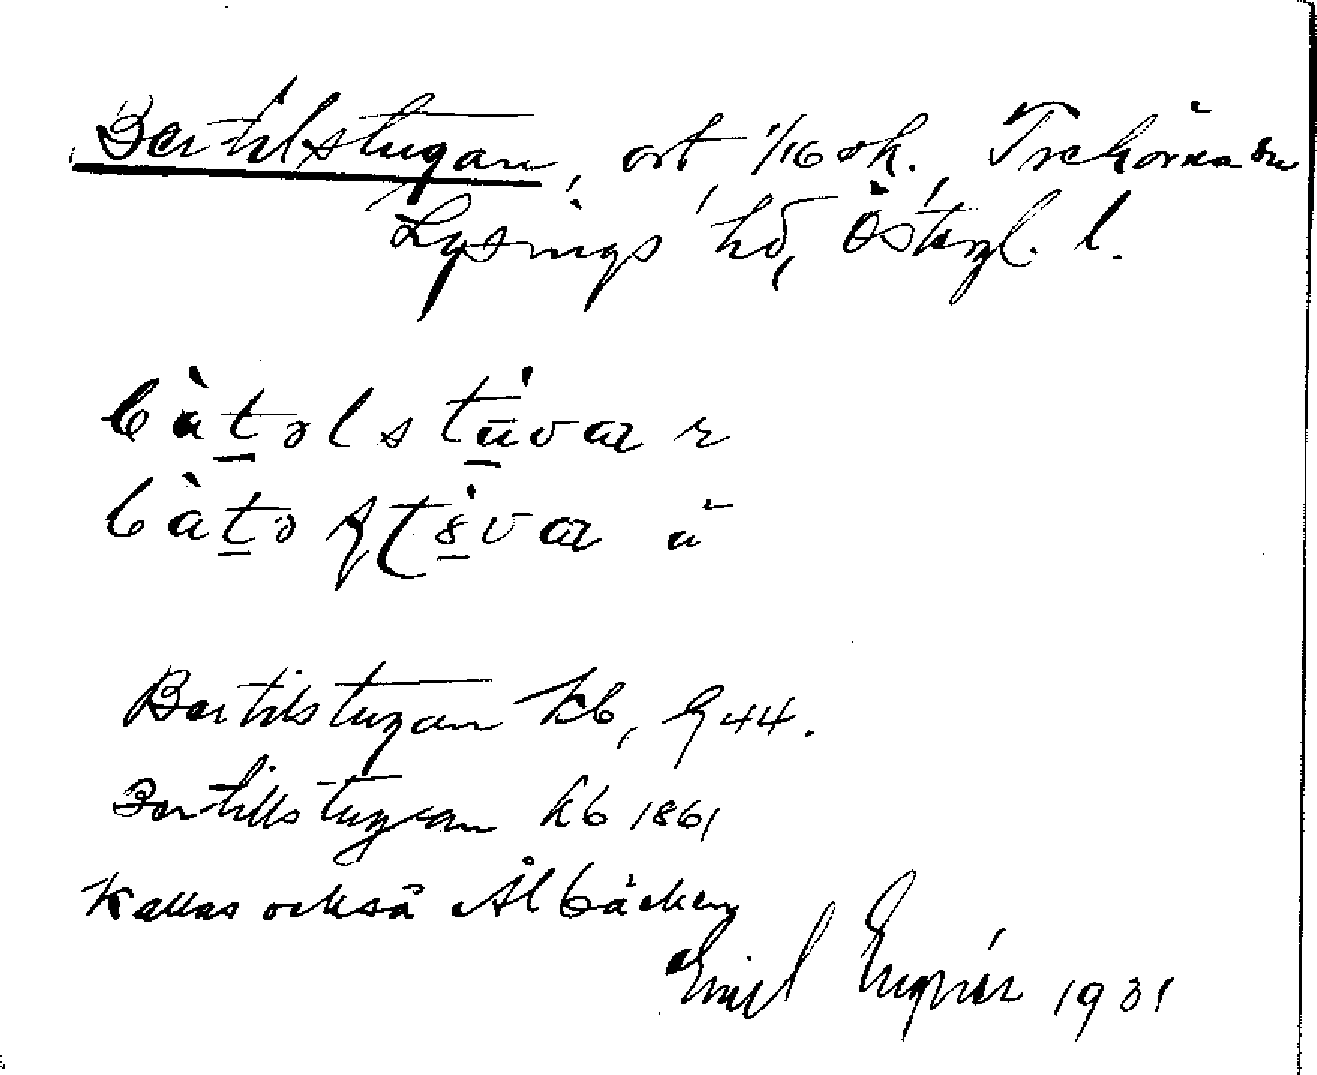 Bertilstugan, ort, 1/16 ok., Trehörna sn
Lysings hd, Östergl. l.
bàtəlstùvaz r
bàtə
Bertilstugan kb, 944.
Bertillstugan kb 1861
Kallas också Ålbäcken
Emil 1931